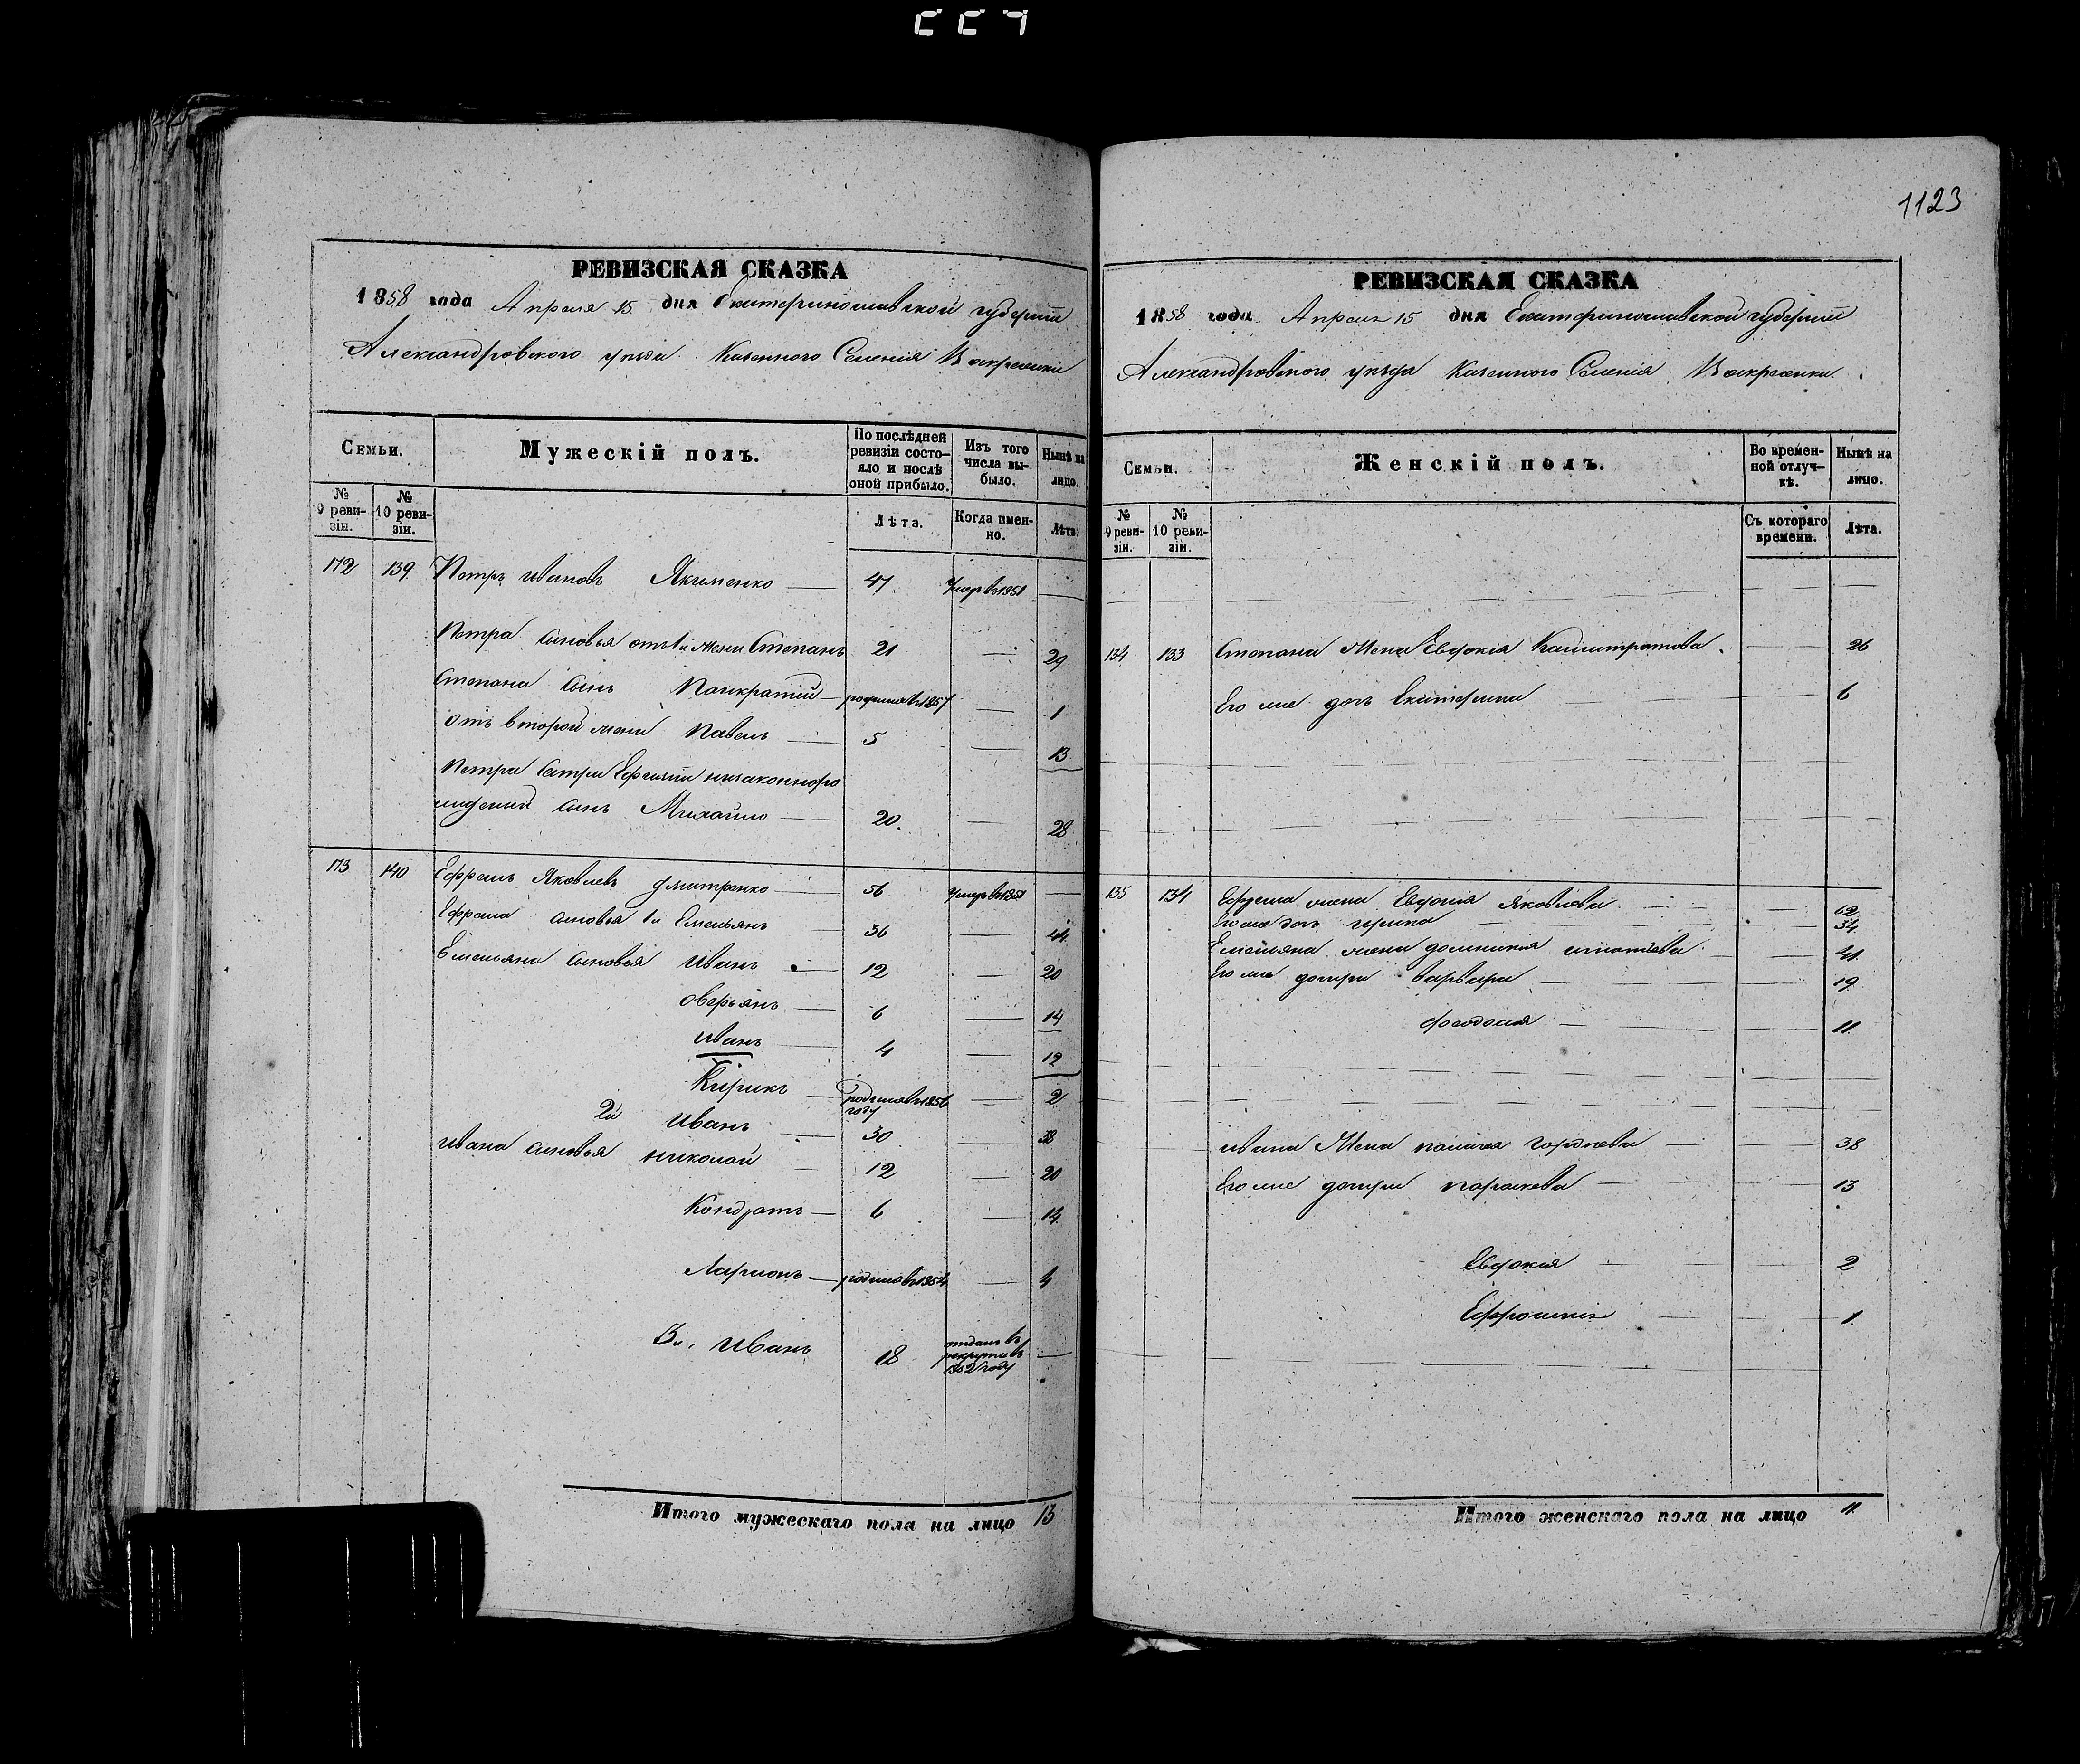 1123
РЕВИЗСКАЯ СКАЗКА
1858 года Апреля 15 дня Екатеринославской губернiи
Александровского уезда Казенного Селенiя Воскресенки
Семьи. Мужескiй полъ. По послѣдней ревизiи состояло и послѣ оной прибыло. Изъ того числа выбыло. Нынѣ на лицо.
№ 9 ревизiи. № 10 ревизiи. Лѣта. Когда именно. Лѣта.
172 139 Петръ Ивановъ Якименко — 47 Умеръ въ 1851 —
Петра сыновья отъ 1й жены Степанъ 21 — 29
Степана сынъ Панкратiй — родился въ 1857 — 1
отъ второй жены Павелъ — 5 — 13
Петра сестры Ефимiи незаконноро
жденный сынъ Михайло — 20. — 28
173 140 Ефремъ Яковлевъ Дмитренко — 56 Умеръ в 1851 —
Ефрема сыновья 1й Емельянъ — 36 — 44
Емельяна сыновья Иванъ — 12 — 20
Оверьянъ — 6 — 14
Иванъ — 4 — 12
Кирикъ — родился въ 1856 году — 2
2й Иванъ — 30 — 38
Ивана сыновья Николай — 12 — 20
Кондратъ — 6 — 14
Ларионъ — родился въ 1854 — 4
3й, Иванъ 18 отданъ въ рекруты въ 1852 году —
Итого мужескаго пола на лицо 13
РЕВИЗСКАЯ СКАЗКА
1858 года Апреля 15 дня Екатеринославской губернiи
Александровского уезда Казенного Селенiя Воскресенки.
Семьи. Женскiй полъ. Во временной отлучкѣ. Нынѣ на лицо.
№ 9 ревизiи. № 10 ревизiи. Съ котораго времени. Лѣта.
134 133 Степана Жена Евдокiя Калистратова — 26
Его же дочь Екатерина — 6
135 134 Ефрема жена Яковлева — 62
Его же дочь Ирина — 34
Емельяна жена Домникiя Игнатьева — 41
Его же дочери Варвара — 19
Феодосiя — 11
Ивана Жена Палагея Гордеева — 38
Его же дочери Параскева — 13
Евдокiя — 2
Ефросинiя — 1
Итого женскаго пола на лицо 11